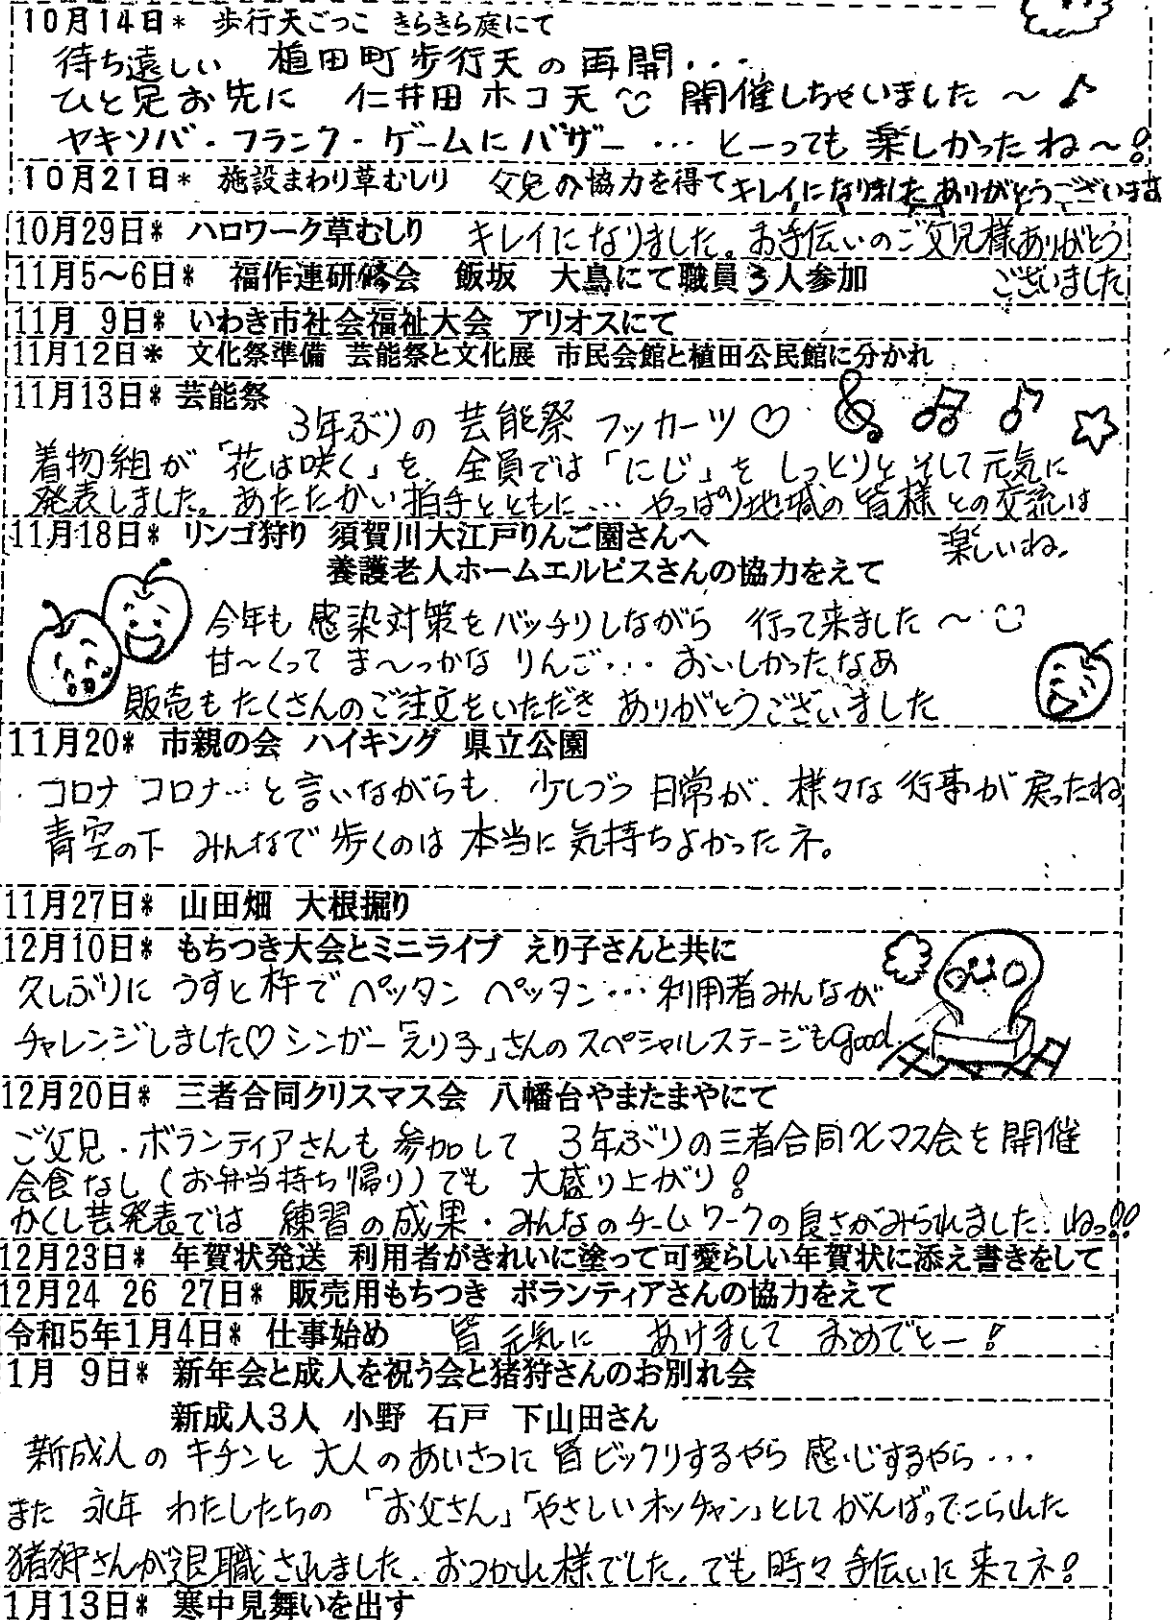 10月14日* 歩行天ごっこ きらきら庭にて
待ち遠しい 植田町歩行天の再開・・・
ひと足お先に 仁井田ホコ天 開催しちゃいました～♪
ヤキソバ・フランク・ゲームにバザー・・・とーっても楽しかったね～!
10月21日* 施設まわり草むしり 父兄の協力を得てキレイになりました ありがとうございます
10月29日* ハロワーク草むしり キレイになりました。お手伝いのご父兄様ありがとう
ございました
11月5～6日* 福作連研修会 飯坂 大鳥にて職員3人参加
11月 9日* いわき市社会福祉大会 アリオスにて
11月12日* 文化祭準備 芸能祭と文化展 市民会館と植田公民館に分かれ
11月13日* 芸能祭
3年ぶりの芸能祭 フッカーツ♡
着物組が「花は咲く」を 全員では「にじ」を しっとりと そして元気に
発表しました。あたたかい拍手とともに・・・ やっぱり地域の皆様との交流は
楽しいね。
11月18日* リンゴ狩り 須賀川大江戸りんご園さんへ
養護老人ホームエルピスさんの協力をえて
今年も 感染対策をバッチリしながら 行って来ました～
甘～くって ま～っかな りんご・・・ おいしかったなあ
販売もたくさんのご注文をいただき ありがとうございました
11月20* 市親の会 ハイキング 県立公園
コロナ コロナ・・・と言いながらも 少しづつ 日常が、様々な行事が戻ったね
青空の下 みんなで歩くのは 本当に気持ちよかったネ。
11月27日* 山田畑 大根掘り
12月10日* もちつき大会とミニライブ えり子さんと共に
久しぶりに うすと杵で ペッタン ペッタン・・・利用者みんなが
チャレンジしました♡ シンガー「えり子」さんのスペシャルステージもgood
12月20日* 三者合同クリスマス会 八幡台やまたまやにて
ご父兄・ボランティアさんも参加して 3年ぶりの三者合同Xマス会を開催
会食なし(お弁当持ち帰り)でも 大盛り上がり!
かくし芸発表では 練習の成果・みんなのチームワークの良さがみられました。ねっ!!
12月23日* 年賀状発送 利用者がきれいに塗って可愛らしい年賀状に添え書きをして
12月24 26 27日* 販売用もちつき ボランティアさんの協力をえて
令和5年1月4日* 仕事始め 皆元気に あけまして おめでとー!
1月 9日* 新年会と成人を祝う会と猪狩さんのお別れ会
新成人3人 小野 石戸 下山田さん
新成人の キチンと 大人のあいさつに 皆ビックリするやら 感心するやら・・・
また 永年 わたしたちの 「お父さん」「やさしいオッチャン」としてがんばってこられた
猪狩さんが退職されました。おつかれ様でした。でも 時々 手伝いに来てネ!
1月13日* 寒中見舞いを出す